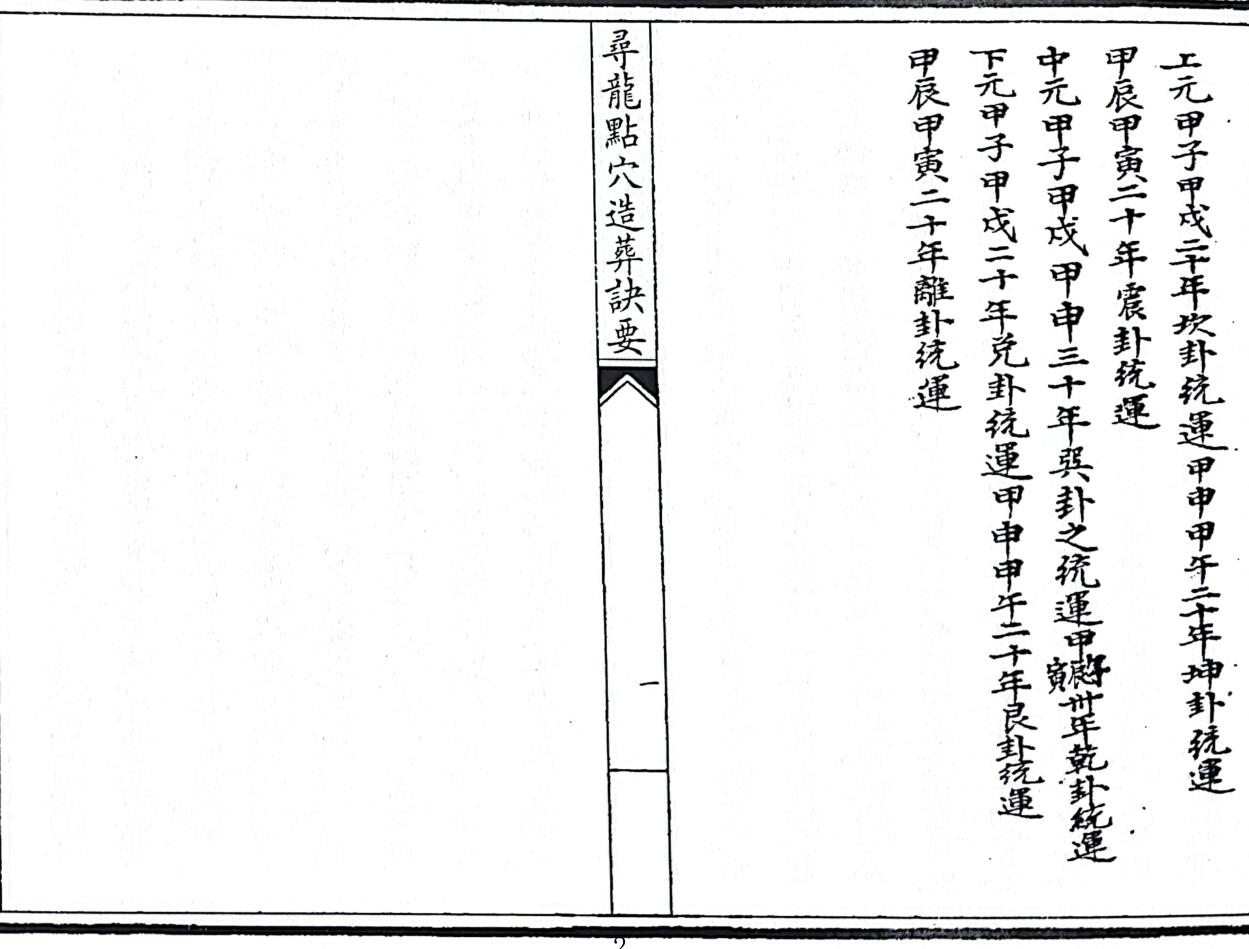 上元甲子甲戌二十年坎卦統運甲申甲午二十年坤卦統運
甲辰甲寅二十年震卦統運
中元甲子甲戌甲申三十年巽卦之統運甲午辰寅卅年乾卦統運
下元甲子甲戌二十年兌卦統運甲申甲午二十年艮卦統運
甲辰甲寅二十年離卦統運
尋龍點穴造葬訣要
一
2